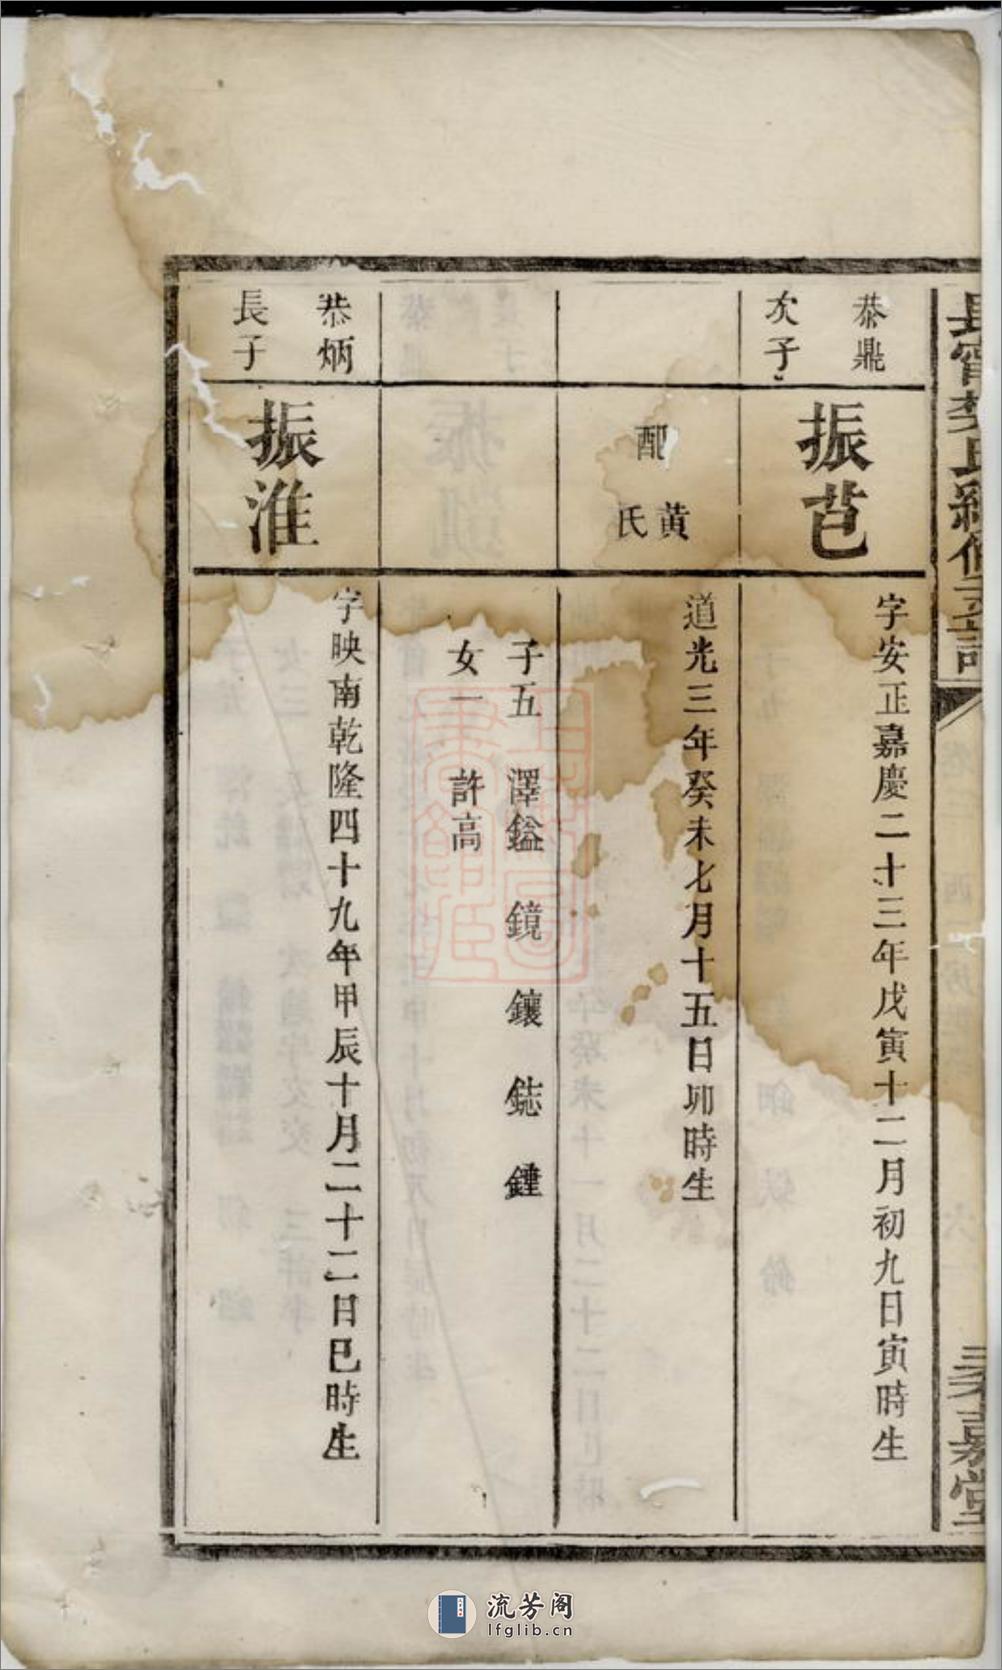 恭鼎
次子
振芑
字安正嘉慶二十三年戊寅十二月初九日寅時生
配黃氏
道光三年癸未七月十五日卯時生
子五 澤鎰 鏡 鑲 鋕 鍾
女一 許高
恭炳
長子
振淮
字映南乾隆四十九年甲辰十月二十二日巳時生
流芳阁
lfglib.cn